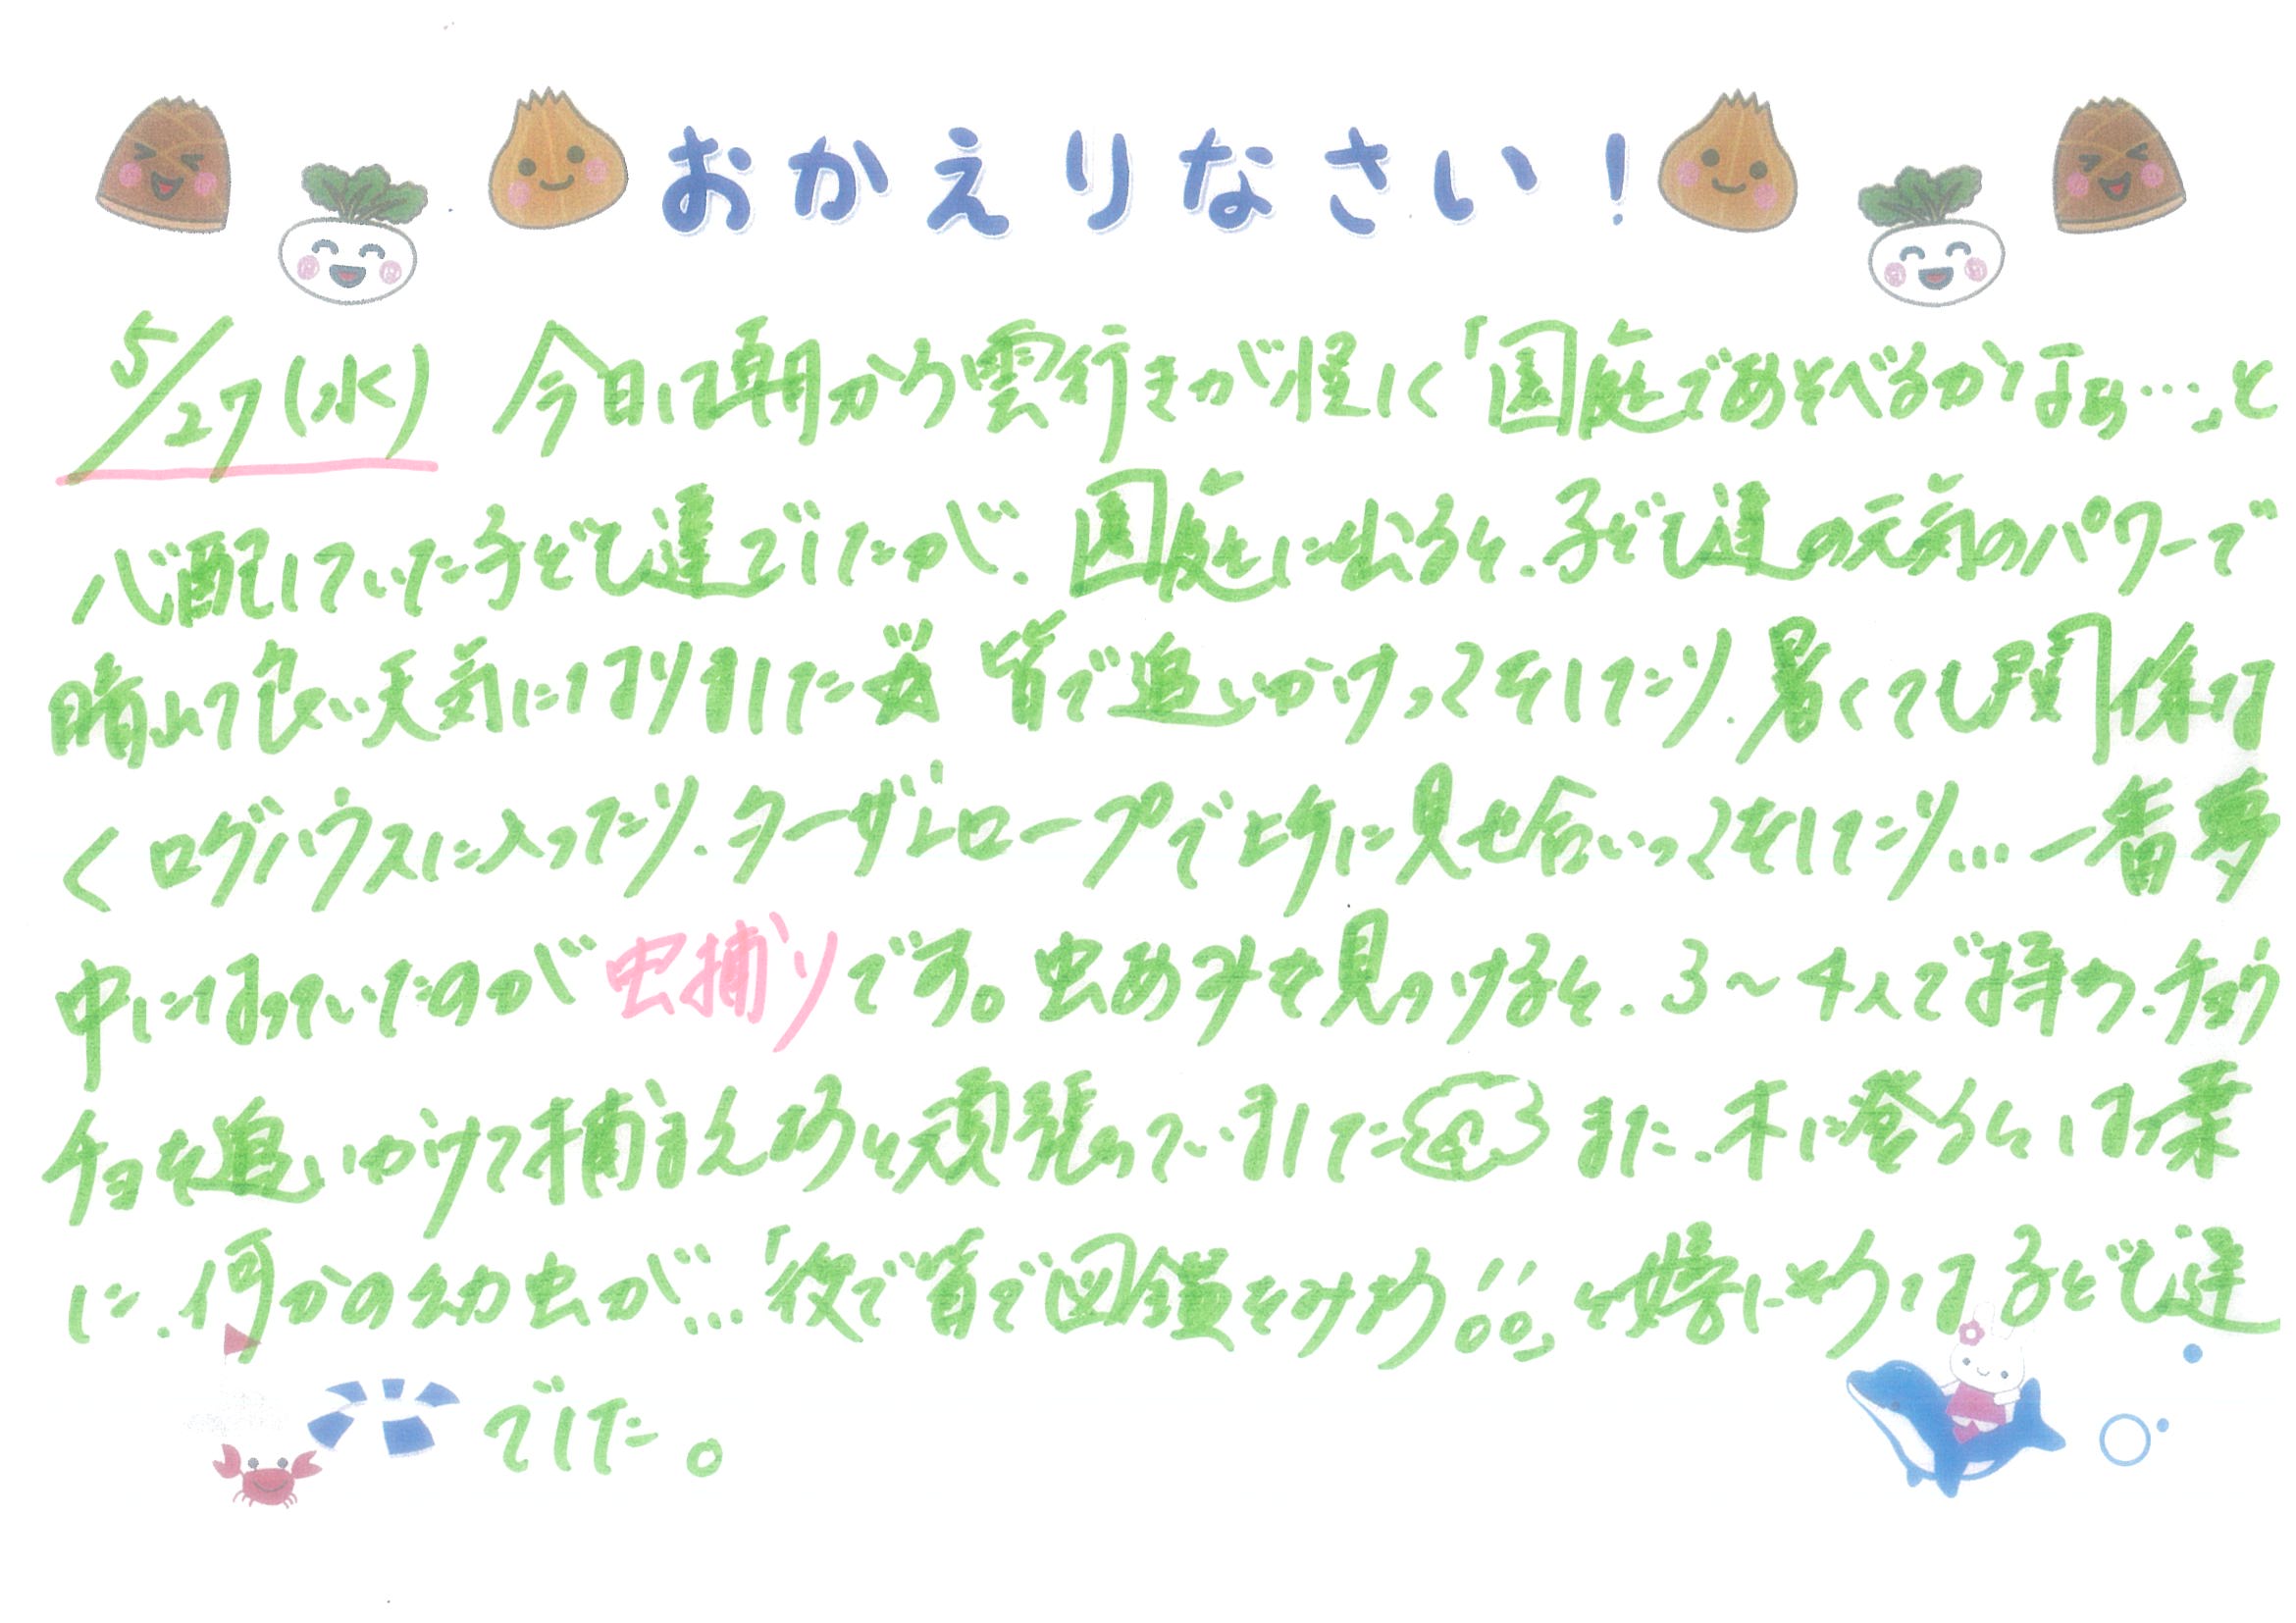 おかえりなさい！
5/27(水) 今日は朝から雲行きが怪しく「園庭であそべるかなぁ…」と
心配していた子ども達でしたが、園庭に出ると、子ども達の元気のパワーで
晴れて良い天気になりました 皆で追いかけっこをしたり、暑くても関係な
くログハウスに入ったり、ターザンロープで上手に見せ合いっこをしたり…一番夢
中になっていたのが虫捕りです。虫あみを見つけると、3〜4人で持ち、チョウ
チョを追いかけて捕まえようと頑張っていました また、木に登ると葉
に、何かの幼虫が…「後で皆で図鑑をみよう!!」と嬉しそうな子ども達
でした。